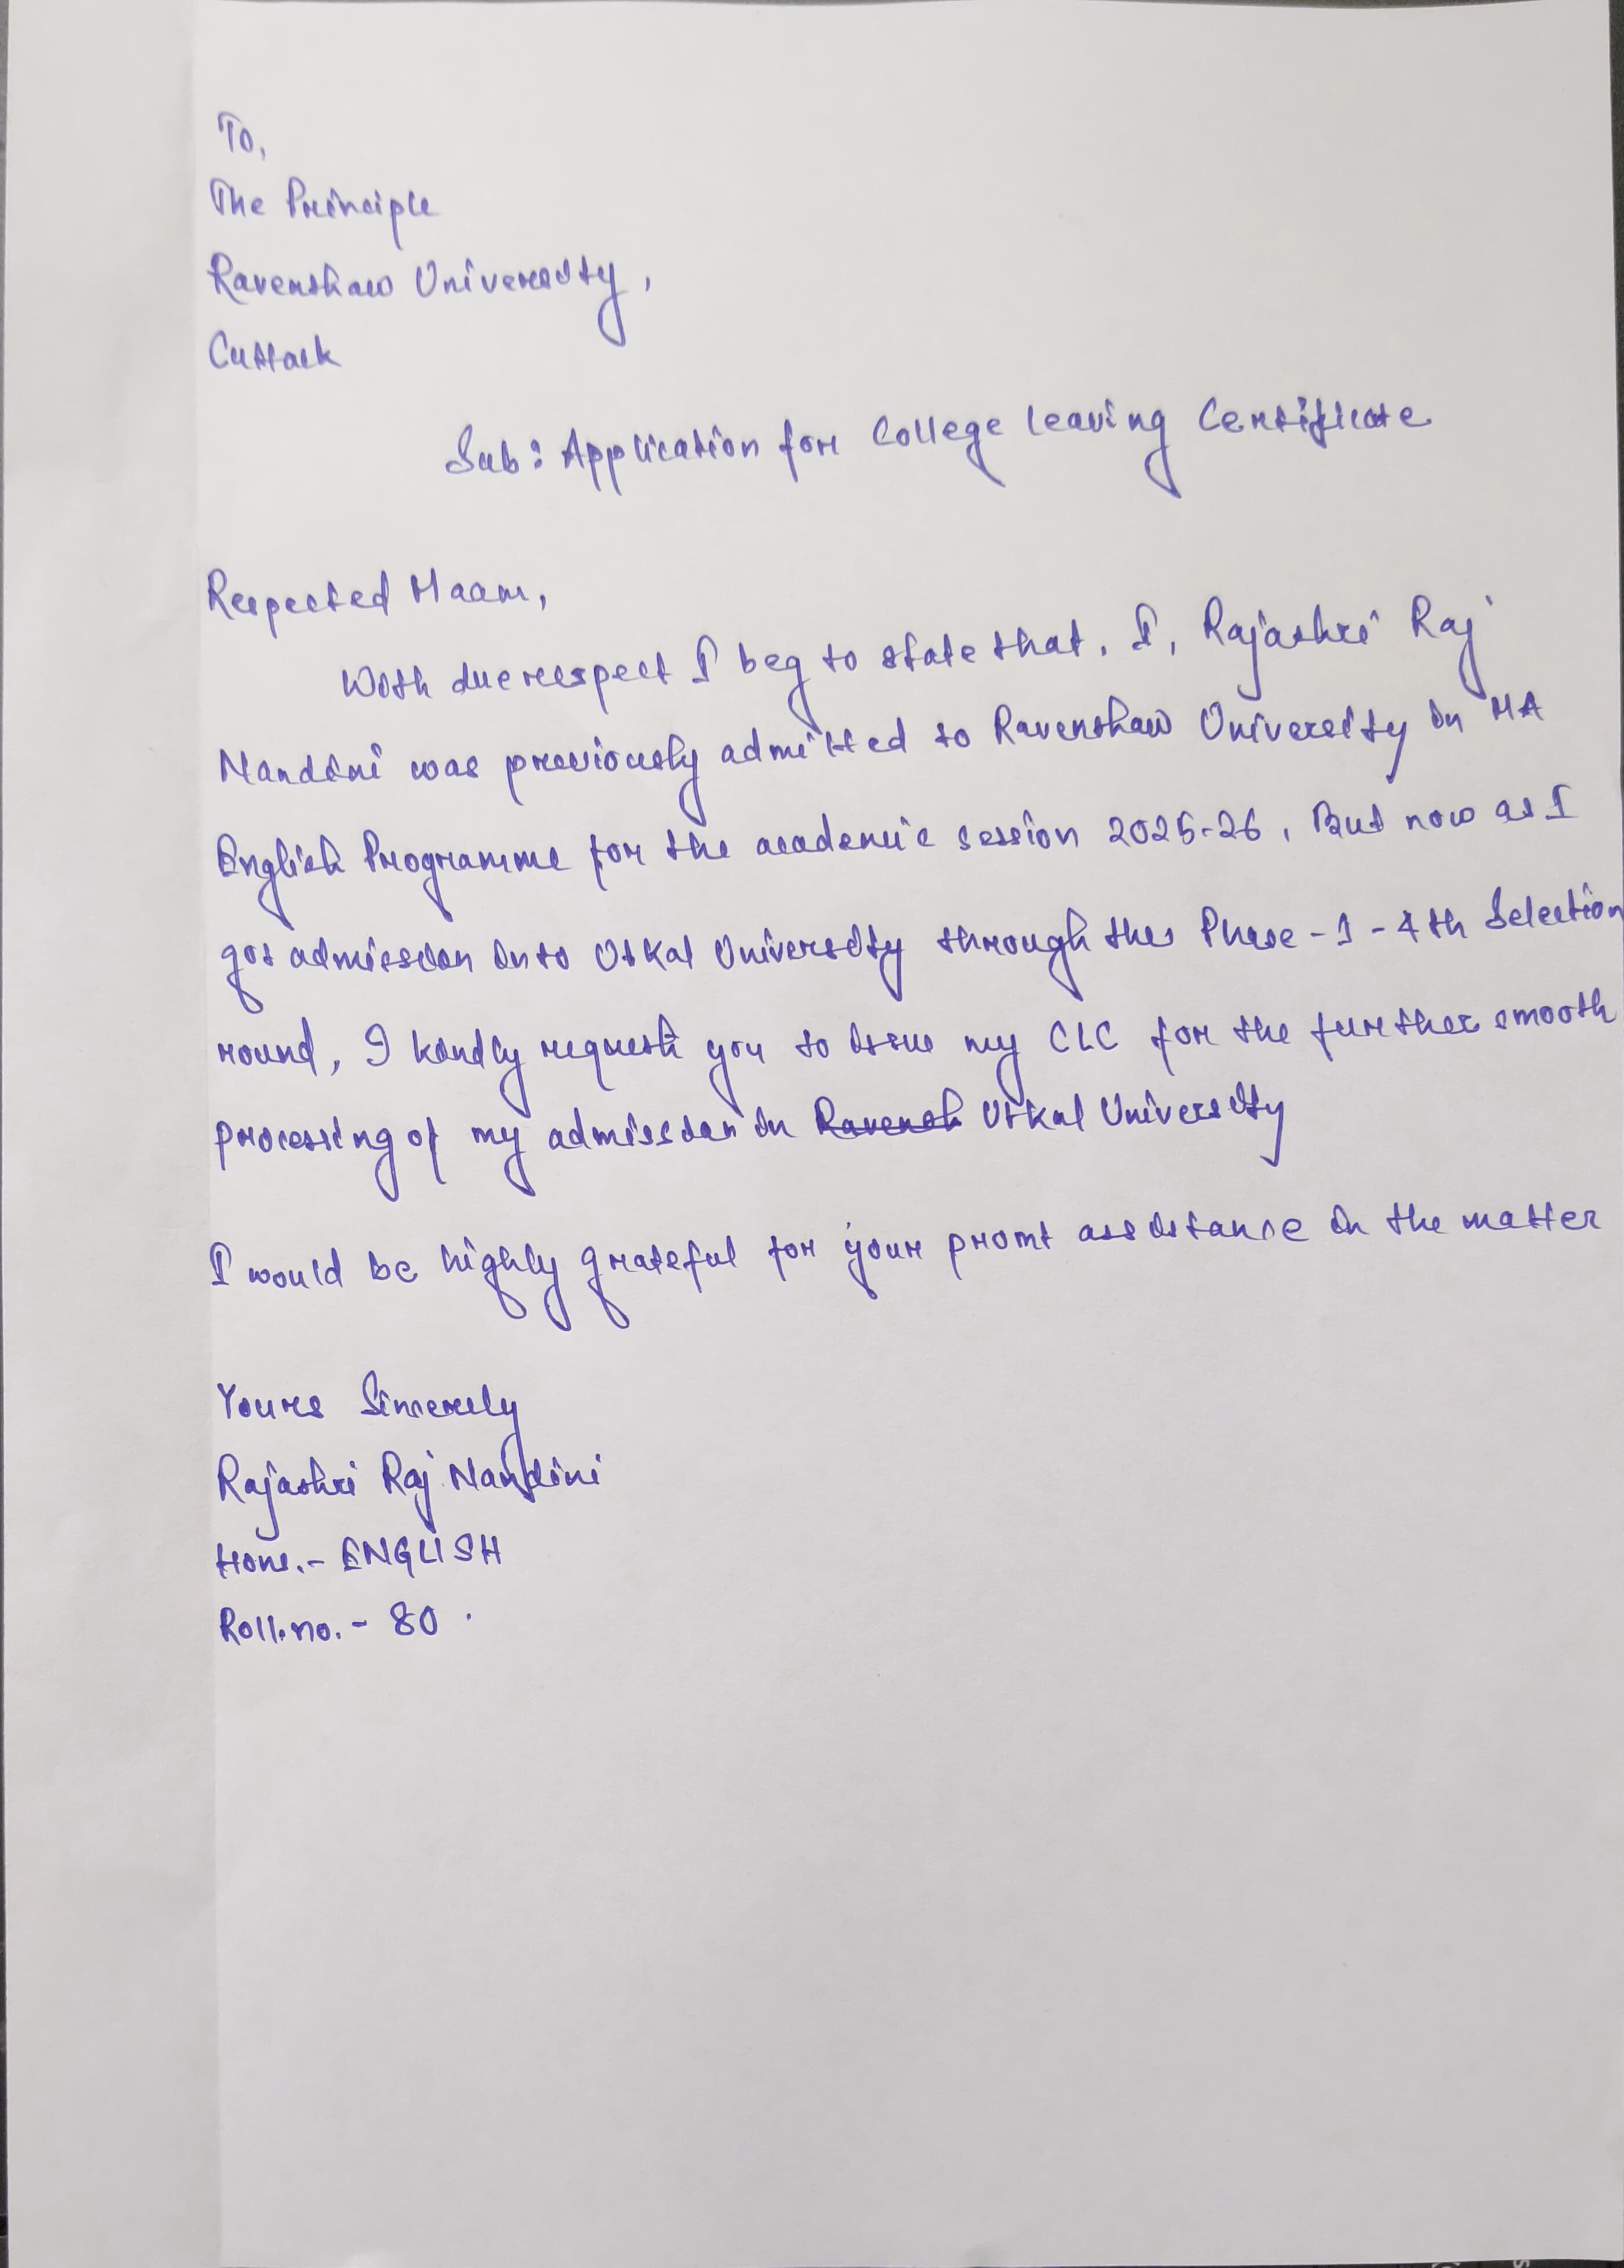 To,
The Principle
Ravenshaw University,
Cuttack
Sub: Application for College leaving Certificate
Respected Maam,
With due respect I beg to state that, I, Rajashri Raj
Nandini was previously admitted to Ravenshaw University in MA
English Programme for the academic session 2025-26, But now as I
got admission into Utkal University through the Phase-1-4th Selection
round, I kindly request you to issue my CLC for the further smooth
processing of my admission in Ravensh Utkal University
I would be highly grateful for your promt assistance in the matter
Yours Sincerely
Rajashri Raj Nandini
Hons.- ENGLISH
Roll.no.- 80.